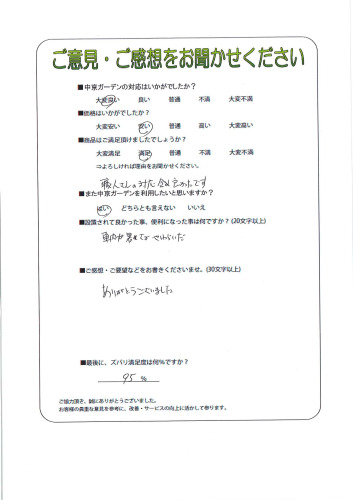 ご意見・ご感想をお聞かせください
■中京ガーデンの対応はいかがでしたか？
大変良い 良い 普通 不満 大変不満
■価格はいかがでしたか？
大変安い 安い 普通 高い 大変高い
■商品はご満足頂けましたでしょうか？
大変満足 満足 普通 不満 大変不満
⇒よろしければ理由をお聞かせください。
職人さんの対応
良かったです
■また中京ガーデンを利用したいと思いますか？
はい どちらとも言えない いいえ
■設置されて良かった事、便利になった事は何ですか？(20文字以上)
車内が暑
■ご感想・ご要望などをお書きくださいませ。(30文字以上)
ありがとうございました
■最後に、ズバリ満足度は何％ですか？
95 %
ご協力頂き、誠にありがとうございました。
お客様の貴重な意見を参考に、改善・サービスの向上に活かして参ります。